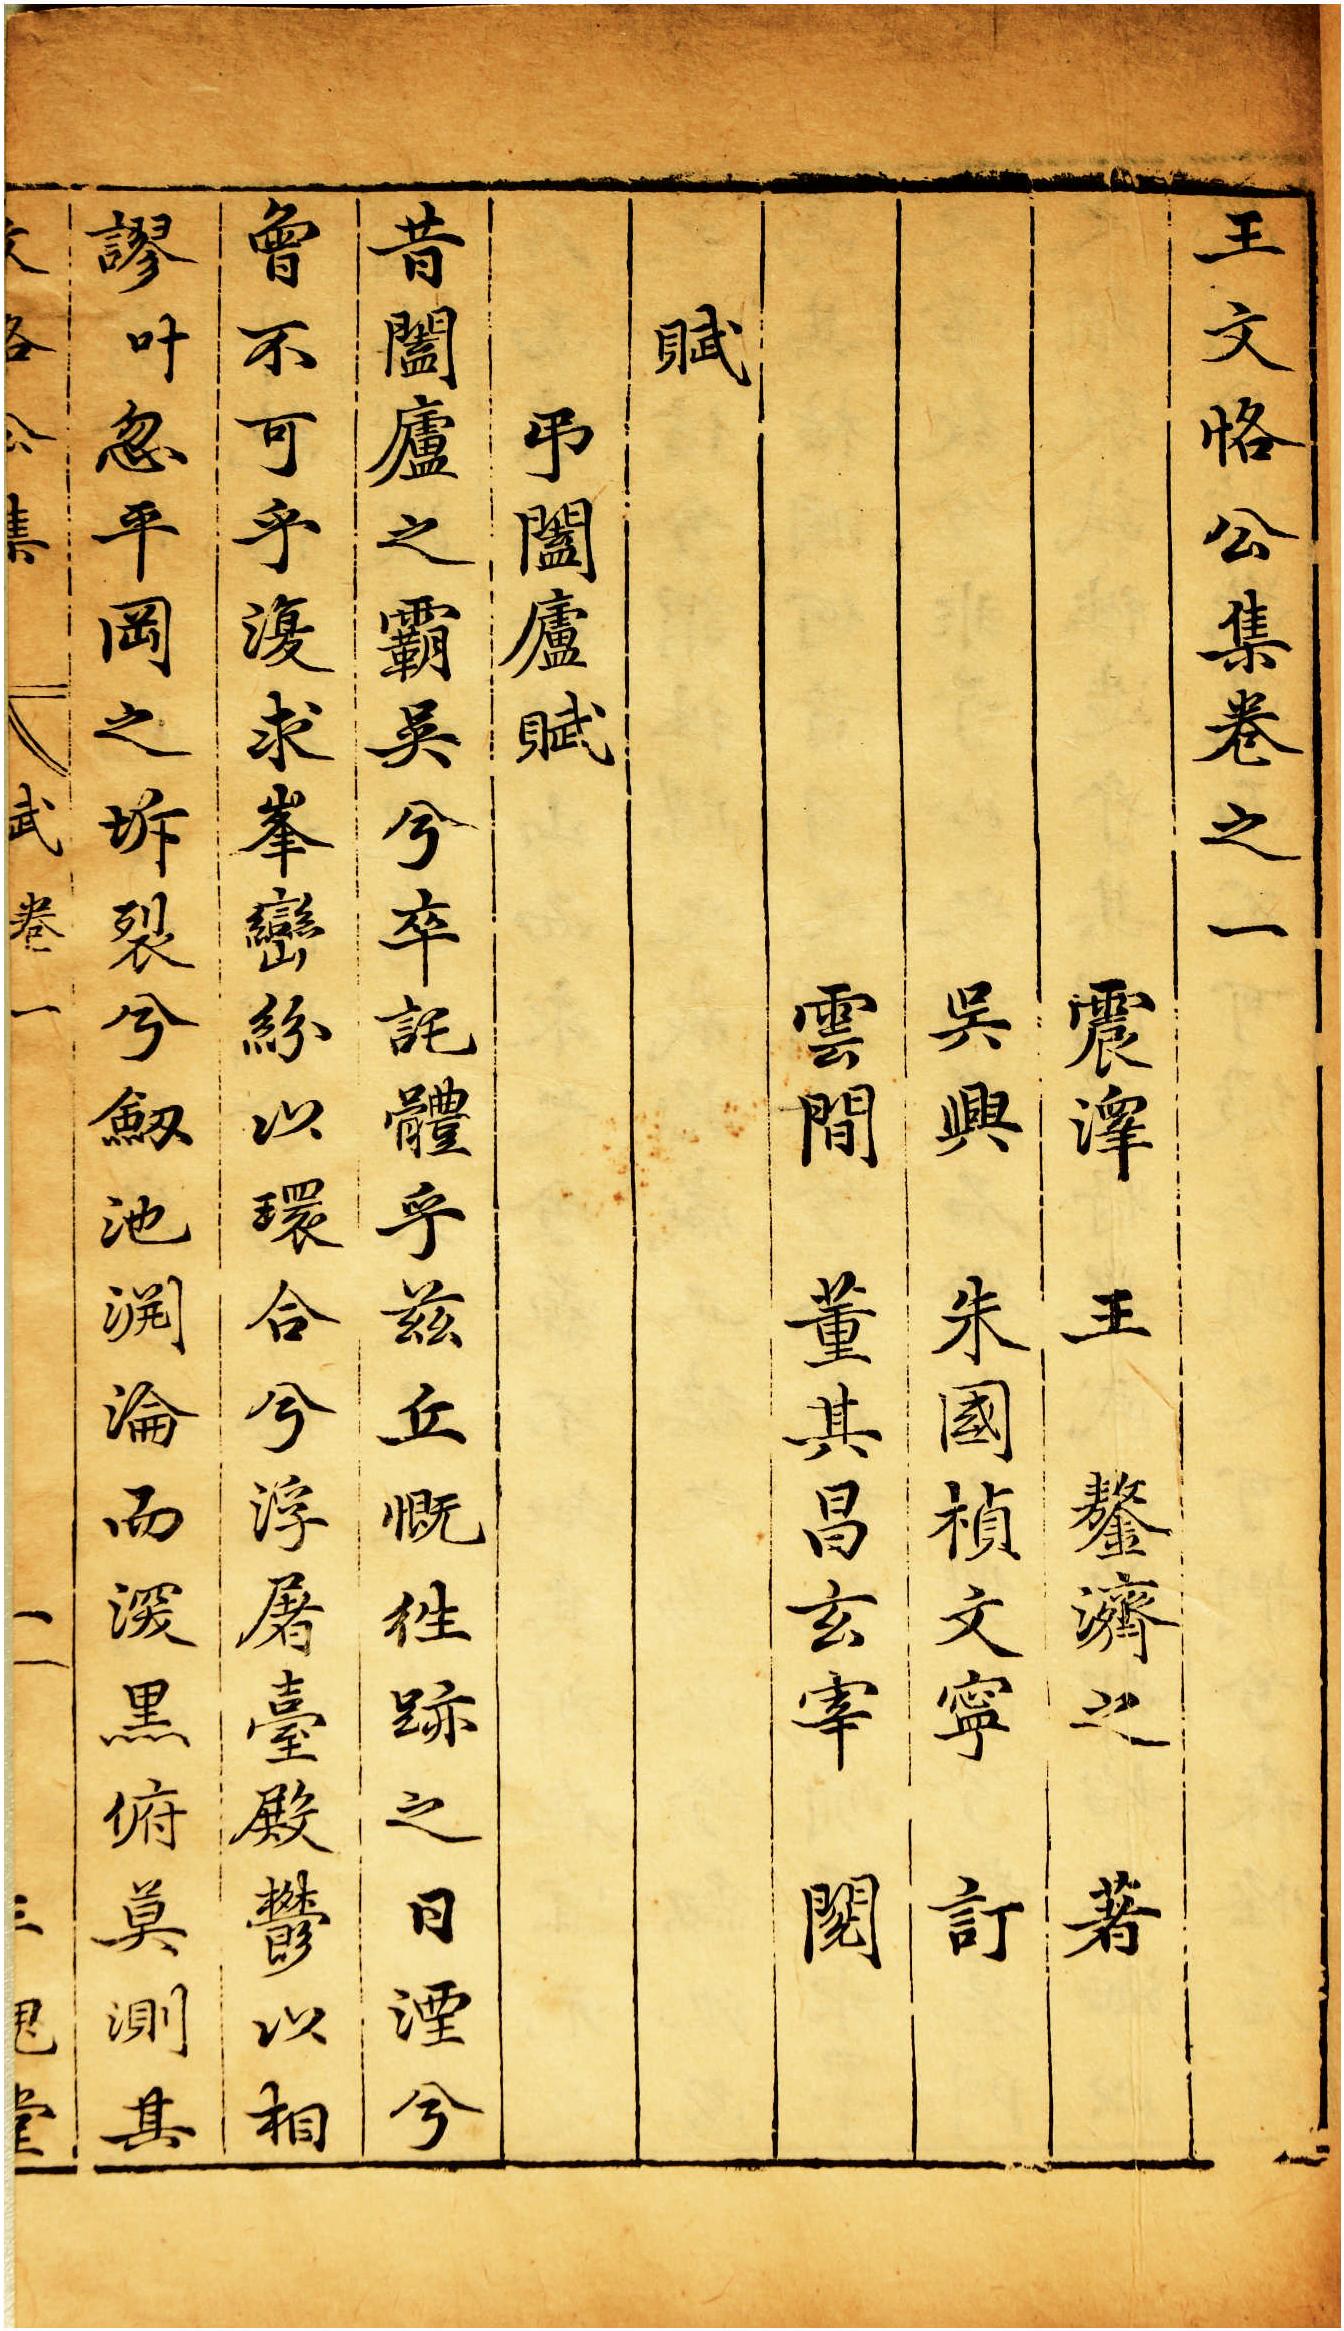 王文恪公集卷之一
震澤　王　鏊濟之　著
吳興　朱國禎文寧　訂
雲間　董其昌玄宰　閱
賦
弔闔廬賦
昔闔廬之霸吳兮卒託體乎茲丘慨徃跡之日湮兮
曾不可乎復求峯巒紛以環合兮浮屠臺殿鬱以相
謬叶忽平岡之坼裂兮劔池泂淪而深黑俯莫測其
文恪公集　賦卷一　一　三槐堂